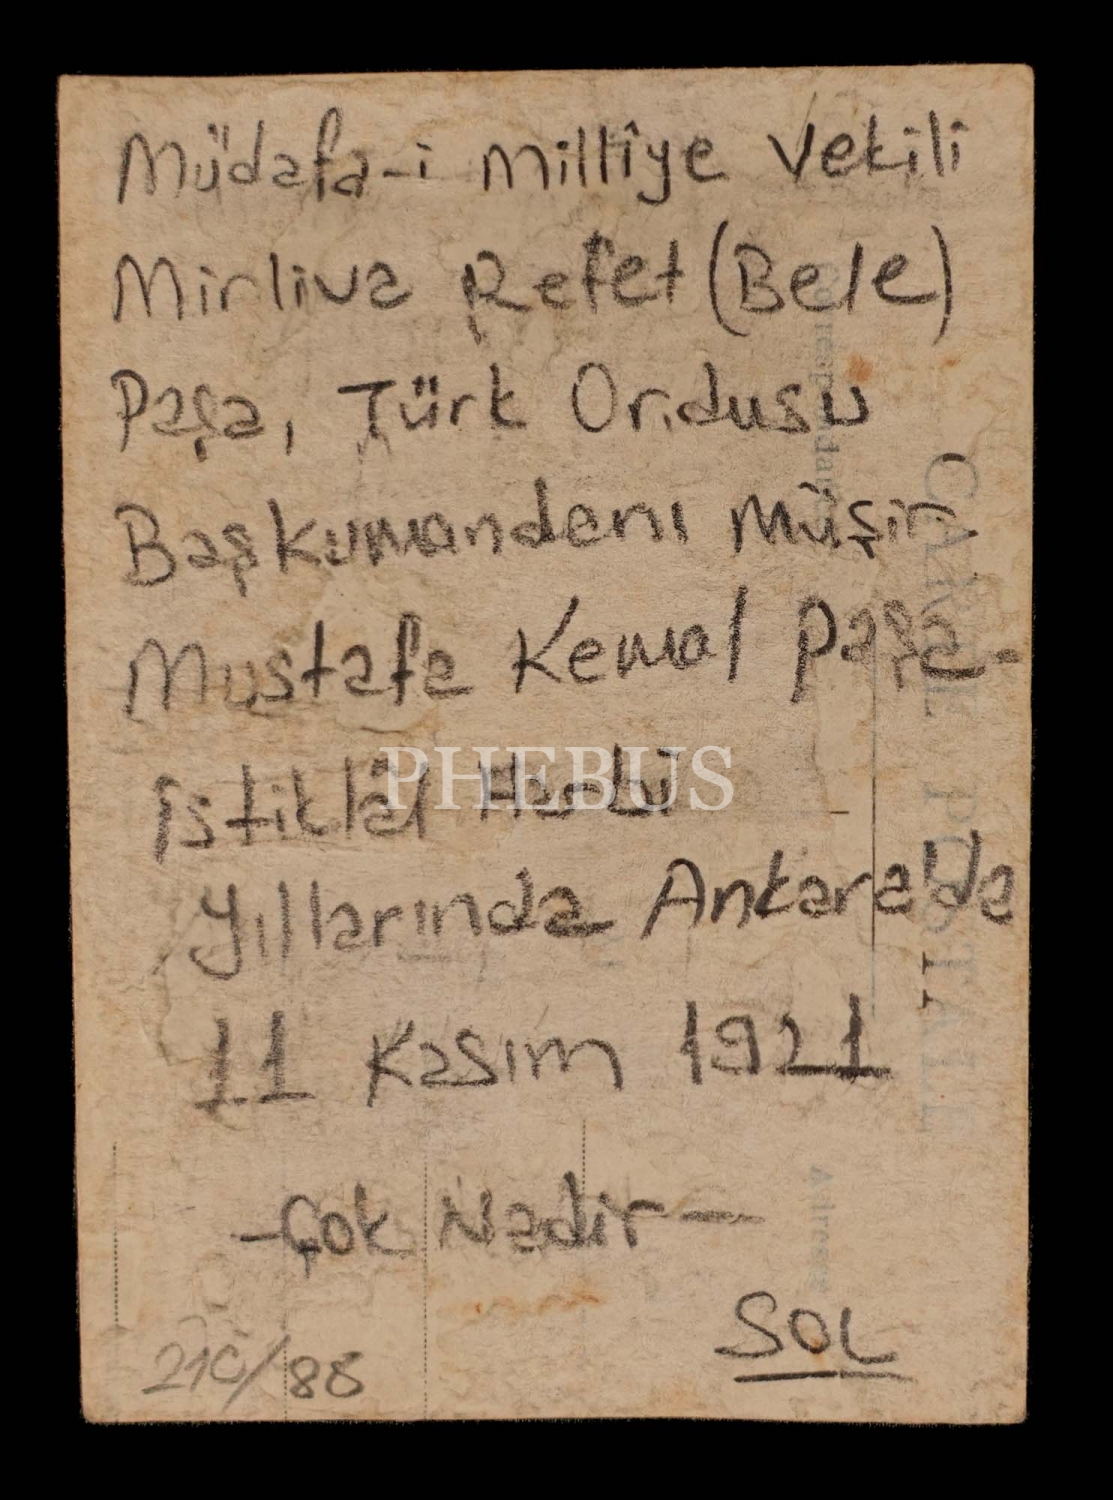 Müdafa-i Millîye Vekili
Mirliva Refet (Bele)
Paşa, Türk Ordusu
Başkumandanı Müşir
Mustafa Kemal Paşa-
İstiklâl Harbi
PHEBUS
Yıllarında Ankara'da
11 Kasım 1921
-Çok Nadir-
SOL
210/88
CARTE POSTALE
Correspondance
Adresse